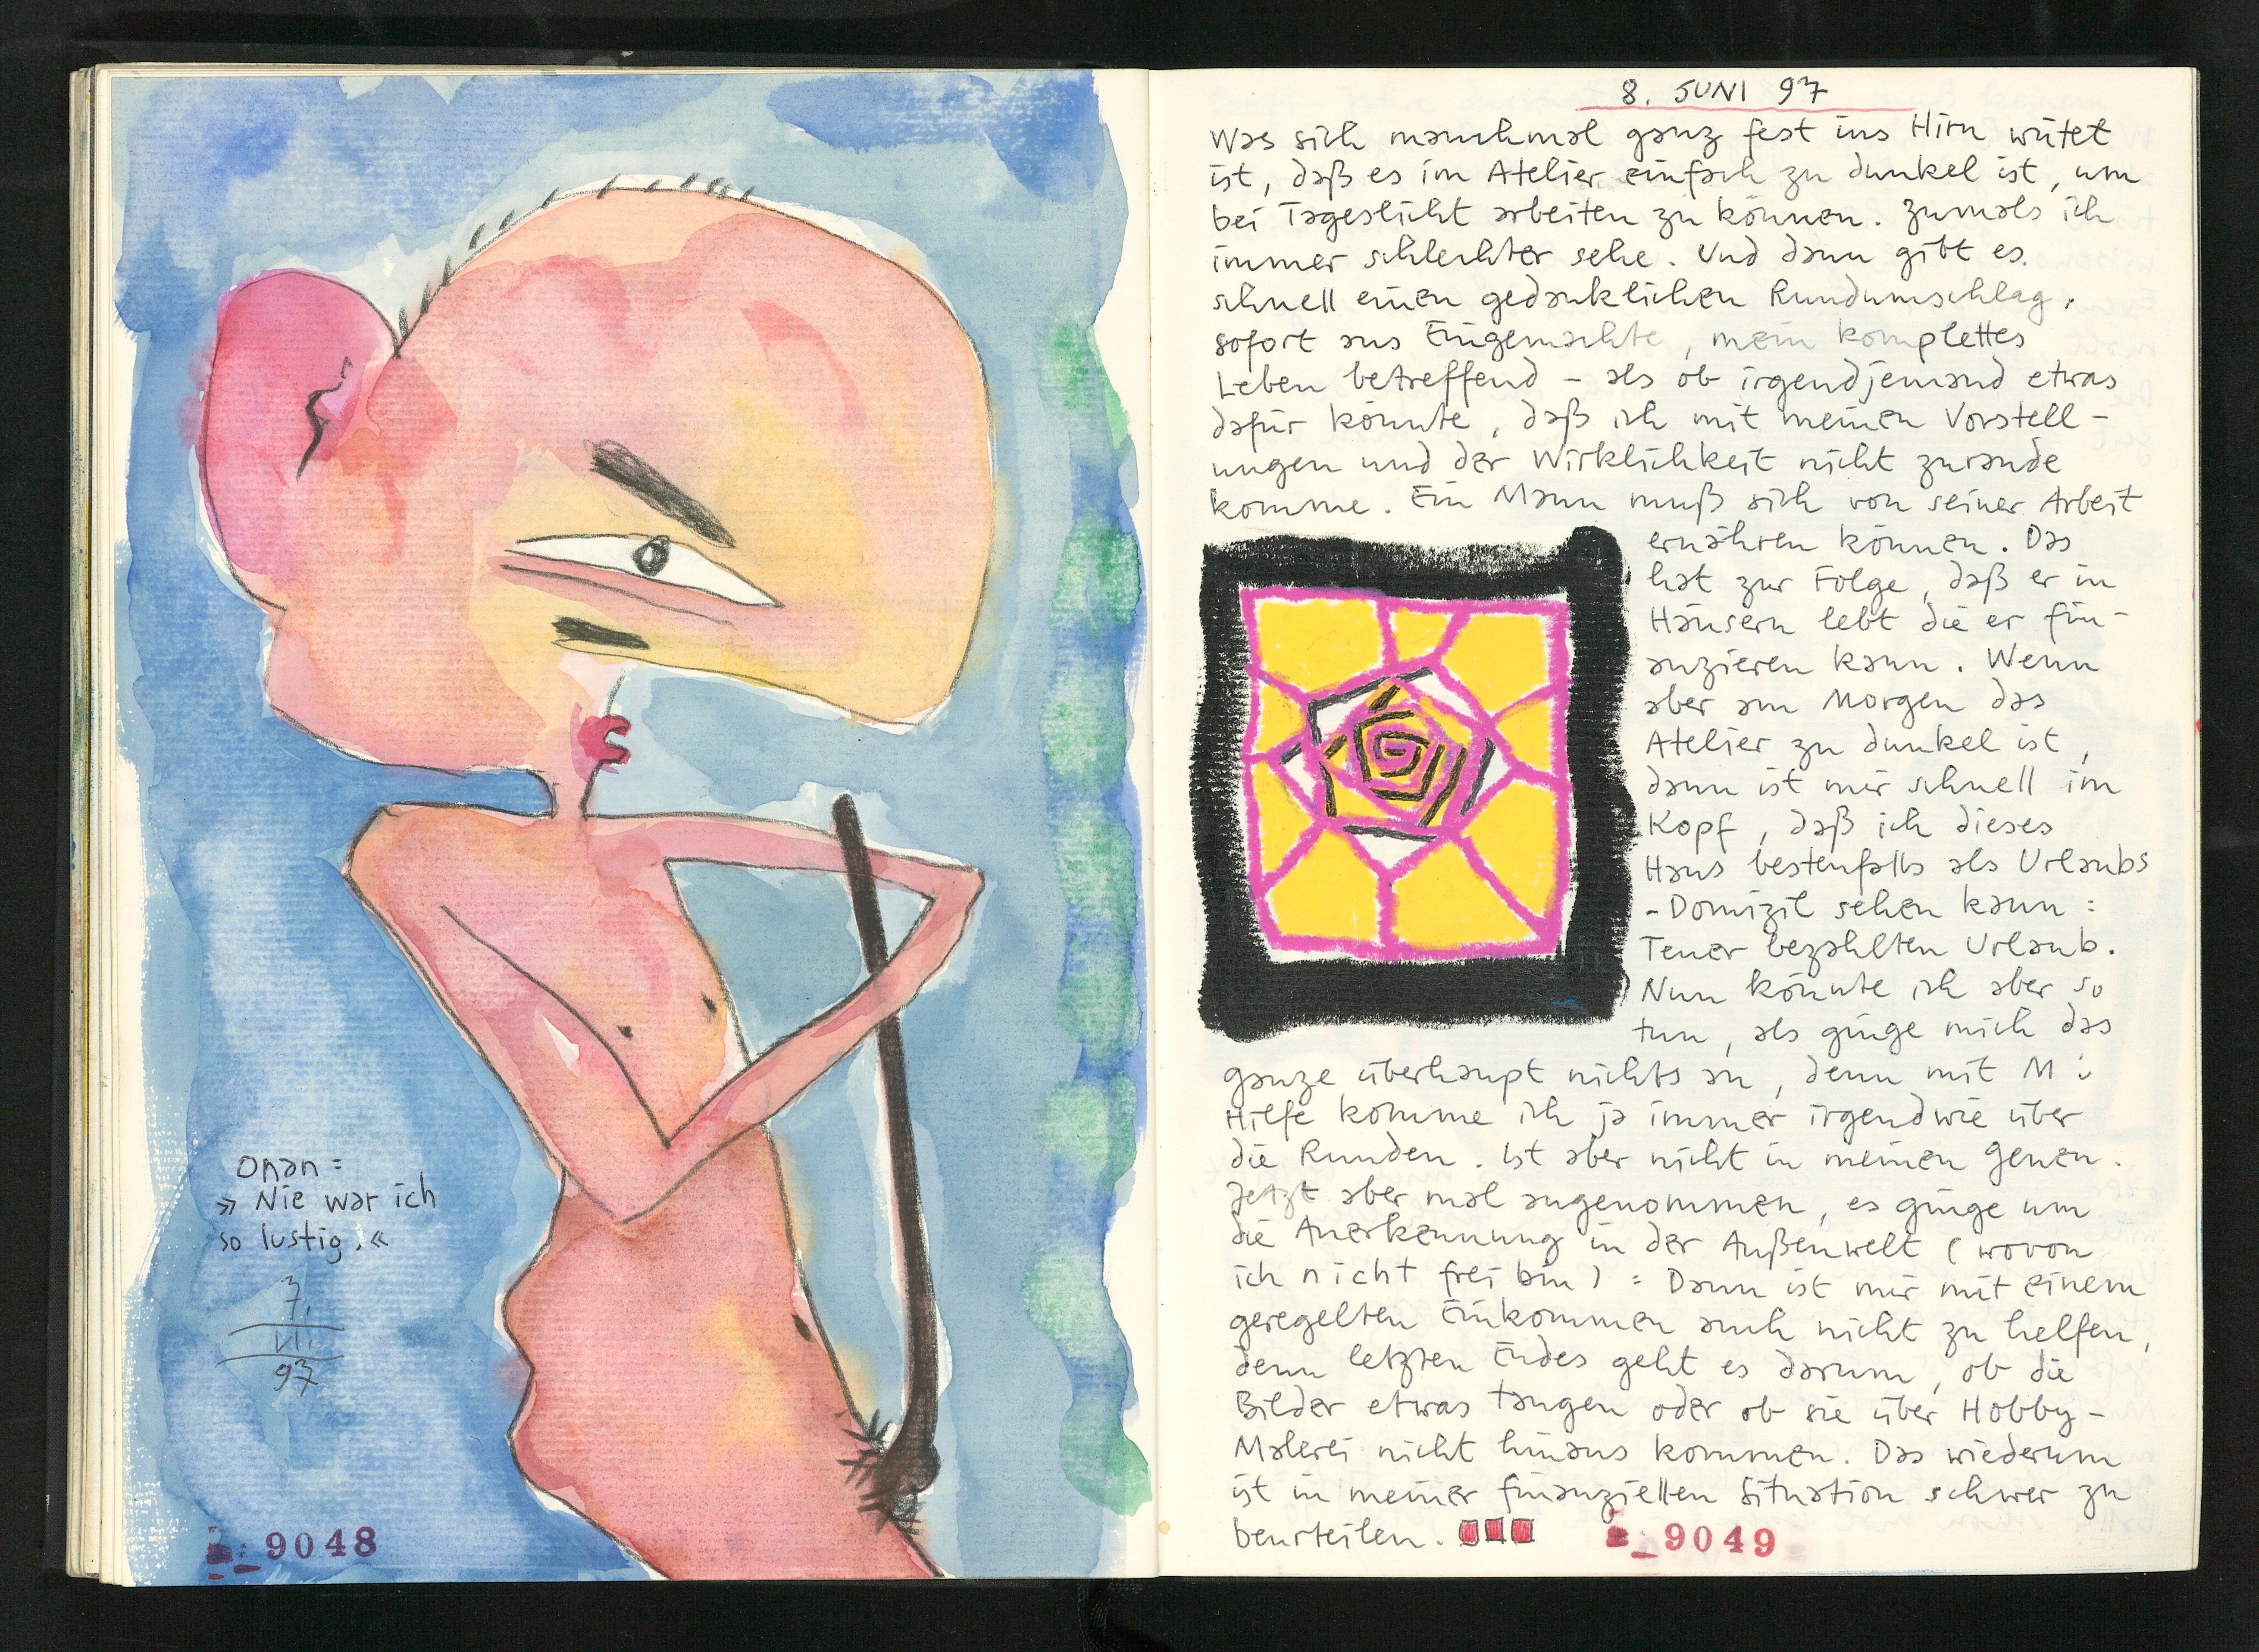 Onan:
»Nie war ich
so lustig.«
7.
VI.
97
9048
8. JUNI 97
Was sich manchmal ganz fest ins Hirn wütet
ist, daß es im Atelier einfach zu dunkel ist, um
bei Tageslicht arbeiten zu können. Zumals ich
immer schlechter sehe. Und dann gibt es
schnell einen gedanklichen Rundumschlag,
sofort ans Eingemachte, mein komplettes
Leben betreffend – als ob irgendjemand etwas
dafür könnte, daß ich mit meinen Vorstell-
ungen und der Wirklichkeit nicht zurande
komme. Ein Mann muß sich von seiner Arbeit
ernähren können. Das
hat zur Folge, daß er in
Häusern lebt die er fin-
anzieren kann. Wenn
aber am Morgen das
Atelier zu dunkel ist,
dann ist mir schnell im
Kopf, daß ich dieses
Haus bestenfalls als Urlaubs
-Domizil sehen kann:
Teuer bezahlten Urlaub.
Nun könnte ich aber so
tun, als ginge mich das
ganze überhaupt nichts an, denn mit M:
Hilfe komme ich ja immer irgendwie über
die Runden. Ist aber nicht in meinen Genen.
Jetzt aber mal angenommen, es ginge um
die Anerkennung in der Außenwelt (wovon
ich nicht frei bin): Dann ist mir mit einem
geregelten Einkommen auch nicht zu helfen,
denn letzten Endes geht es darum, ob die
Bilder etwas taugen oder ob sie über Hobby-
Malerei nicht hinaus kommen. Das wiederum
ist in meiner finanziellen Situation schwer zu
beurteilen.
9049